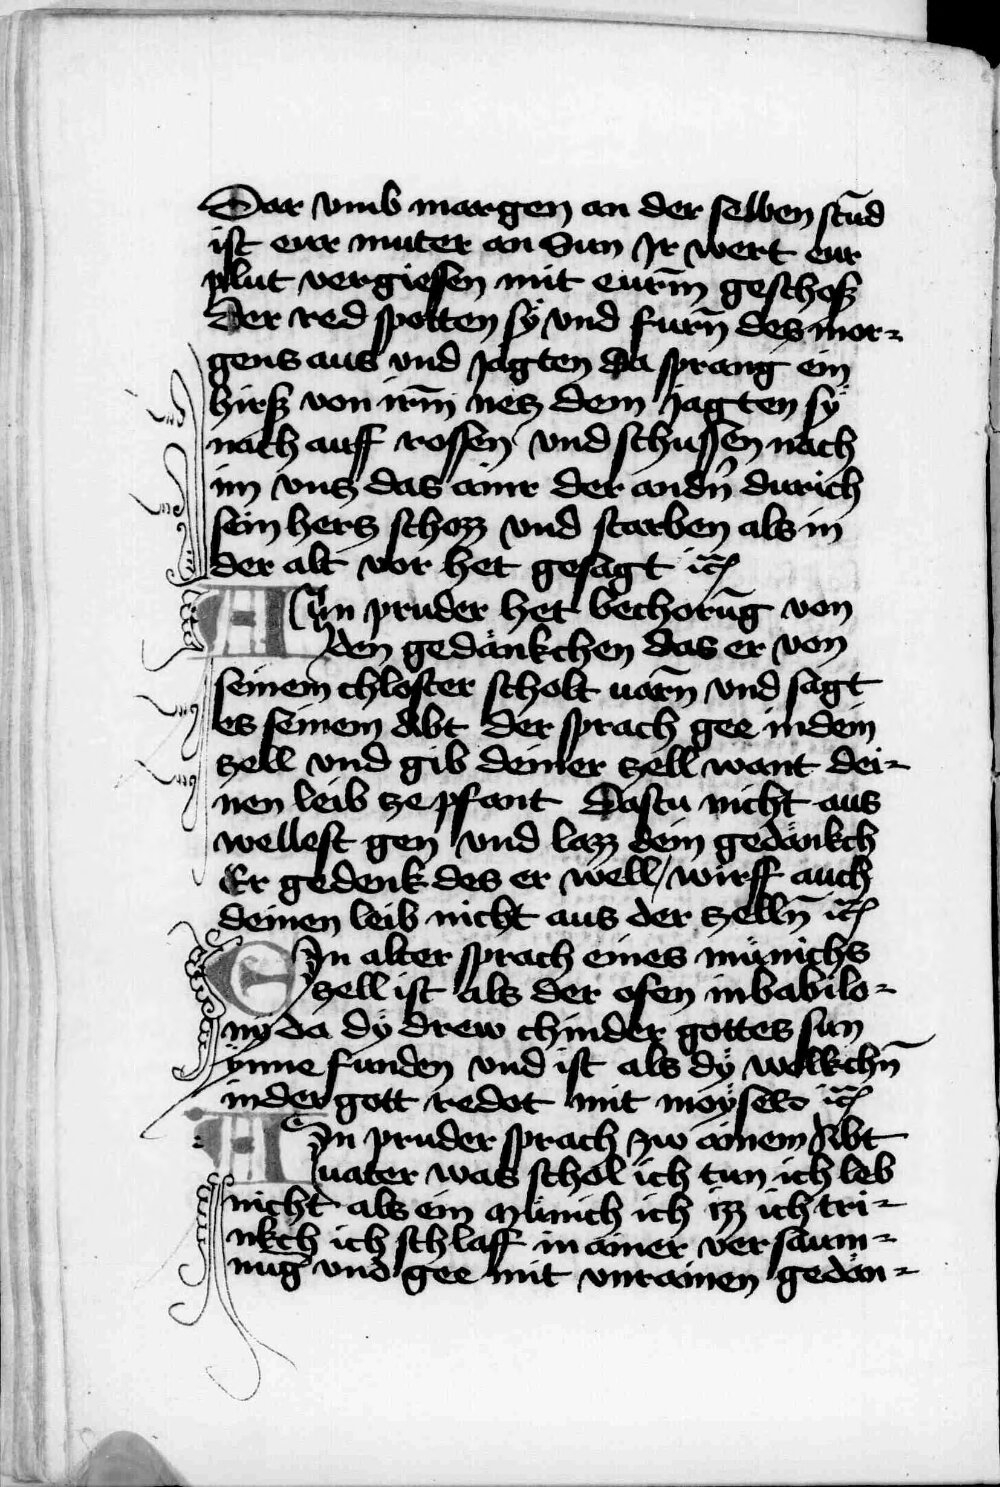 Dar vmb margen an der selben stūd
ist eur muter an Sun Jr wert eur
plut vergiessen mit eurm̄ geschosz
Der red spotten sÿ vnd furn̄ des mor-
gens aus vnd Jagten da sprang ein
hirsz von irm̄ netz dem jagten sÿ
nach auff rossen vnd schussen nach
im vntz das ainr der andn̄ durich
sein hertz schozz vnd starben als in
der alt vor het gesagt ⁊c̄
AIn pruder het bechorūg von
den gedänkchen das er von
seinem chloster scholt uarn̄ vnd sagt
es seinem Abt der sprach gee in dein
zell vnd gib deiner zell want dei-
nen leib ze pfant Dastu nicht aus
wellest gen vnd lazz dein gedänkch
Er gedenk des er well / wirff auch
deinen leib nicht aus der zelln̄ ⁊c̄
EIn alter sprach eines münichs
zell ist als der ofen in babilo-
ny da dÿ drew chinder gottes sun
ÿnne funden vnd ist als dÿ wolkchn̄
in der gott redot mit moÿses ⁊c̄
AIn pruder sprach zw ainem Abt
uater was schol ich tun ich leb
nicht als ein Münich ich izz ich tri-
nkch ich schlaff in ainer versaum-
nuḡ vnd gee mit vnrainen gedän-